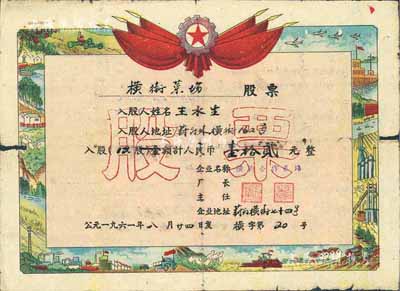 横街菜场 股票
入股人姓名王水生
入股人地址 横街
入股 股金额计人民币 壹拾贰 元整
股票
企业名称
厂长
主任
企业地址 横街七十四号
公元一九六一年八月廿四日发 横字第20号